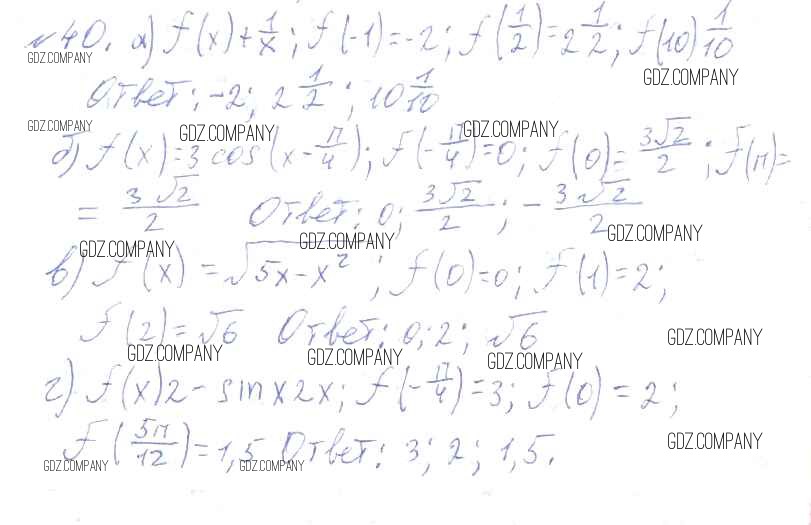 №40. а) f(x)+1/x; f(-1)=-2; f(1/2)=2 1/2; f(10) 1/10
GDZ.COMPANY GDZ.COMPANY
Ответ: -2; 2 1/2; 10 1/10
GDZ.COMPANY GDZ.COMPANY GDZ.COMPANY
б) f(x)=3 cos(x-π/4); f(-π/4)=0; f(0)=3√2/2; f(π)=
= 3√2/2 Ответ: 0; 3√2/2; -3√2/2
GDZ.COMPANY GDZ.COMPANY GDZ.COMPANY
в) f(x)=√5x-x²; f(0)=0; f(1)=2;
f(2)=√6 Ответ: 0; 2; √6
GDZ.COMPANY GDZ.COMPANY GDZ.COMPANY GDZ.COMPANY
г) f(x)2-sinx2x; f(-π/4)=3; f(0)=2;
f(5π/12)=1,5 Ответ: 3; 2; 1,5.
GDZ.COMPANY GDZ.COMPANY GDZ.COMPANY